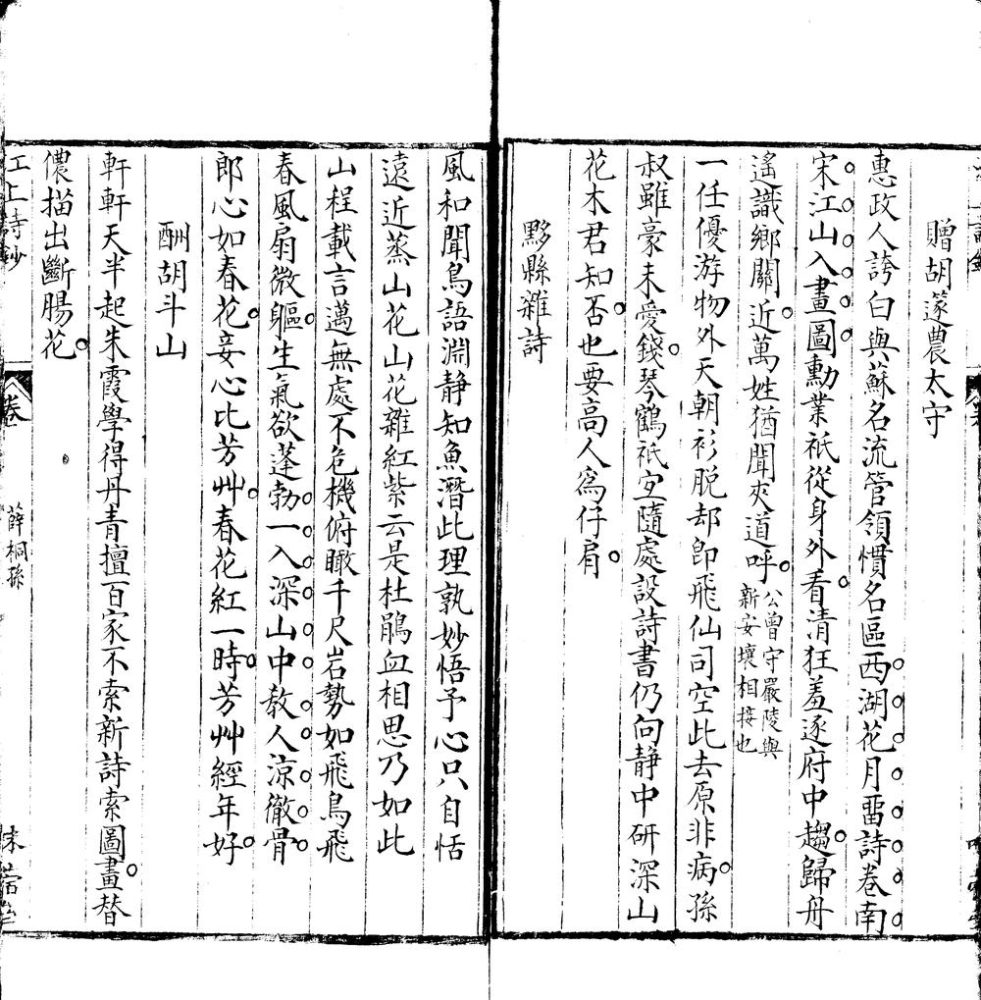 贈胡篴農太守
惠政人誇白與蘇名流管領慣名區西湖花月畱詩卷南
宋江山入畫圖勳業祇從身外看清狂羞逐府中趨歸舟
遙識鄉關近萬姓猶聞夾道呼公曾守嚴陵與新安壤相接也
一任優游物外天朝衫脫却卽飛仙司空此去原非病孫
叔雖豪未愛錢琴鶴祇宜隨處設詩書仍向靜中研深山
花木君知否也要高人爲仔肩
黟縣雜詩
風和聞鳥語淵靜知魚潛此理孰妙悟予心只自恬
遠近蒸山花山花雜紅紫云是杜鵑血相思乃如此
山程載言邁無處不危機俯瞰千尺岩勢如飛鳥飛
春風扇微軀生氣欲蓬勃一入深山中教人涼徹骨
郎心如春花妾心比芳艸春花紅一時芳艸經年好
酬胡斗山
軒軒天半起朱霞學得丹青擅百家不索新詩索圖畫替
儂描出斷腸花
江上詩鈔
卷
薛桐孫